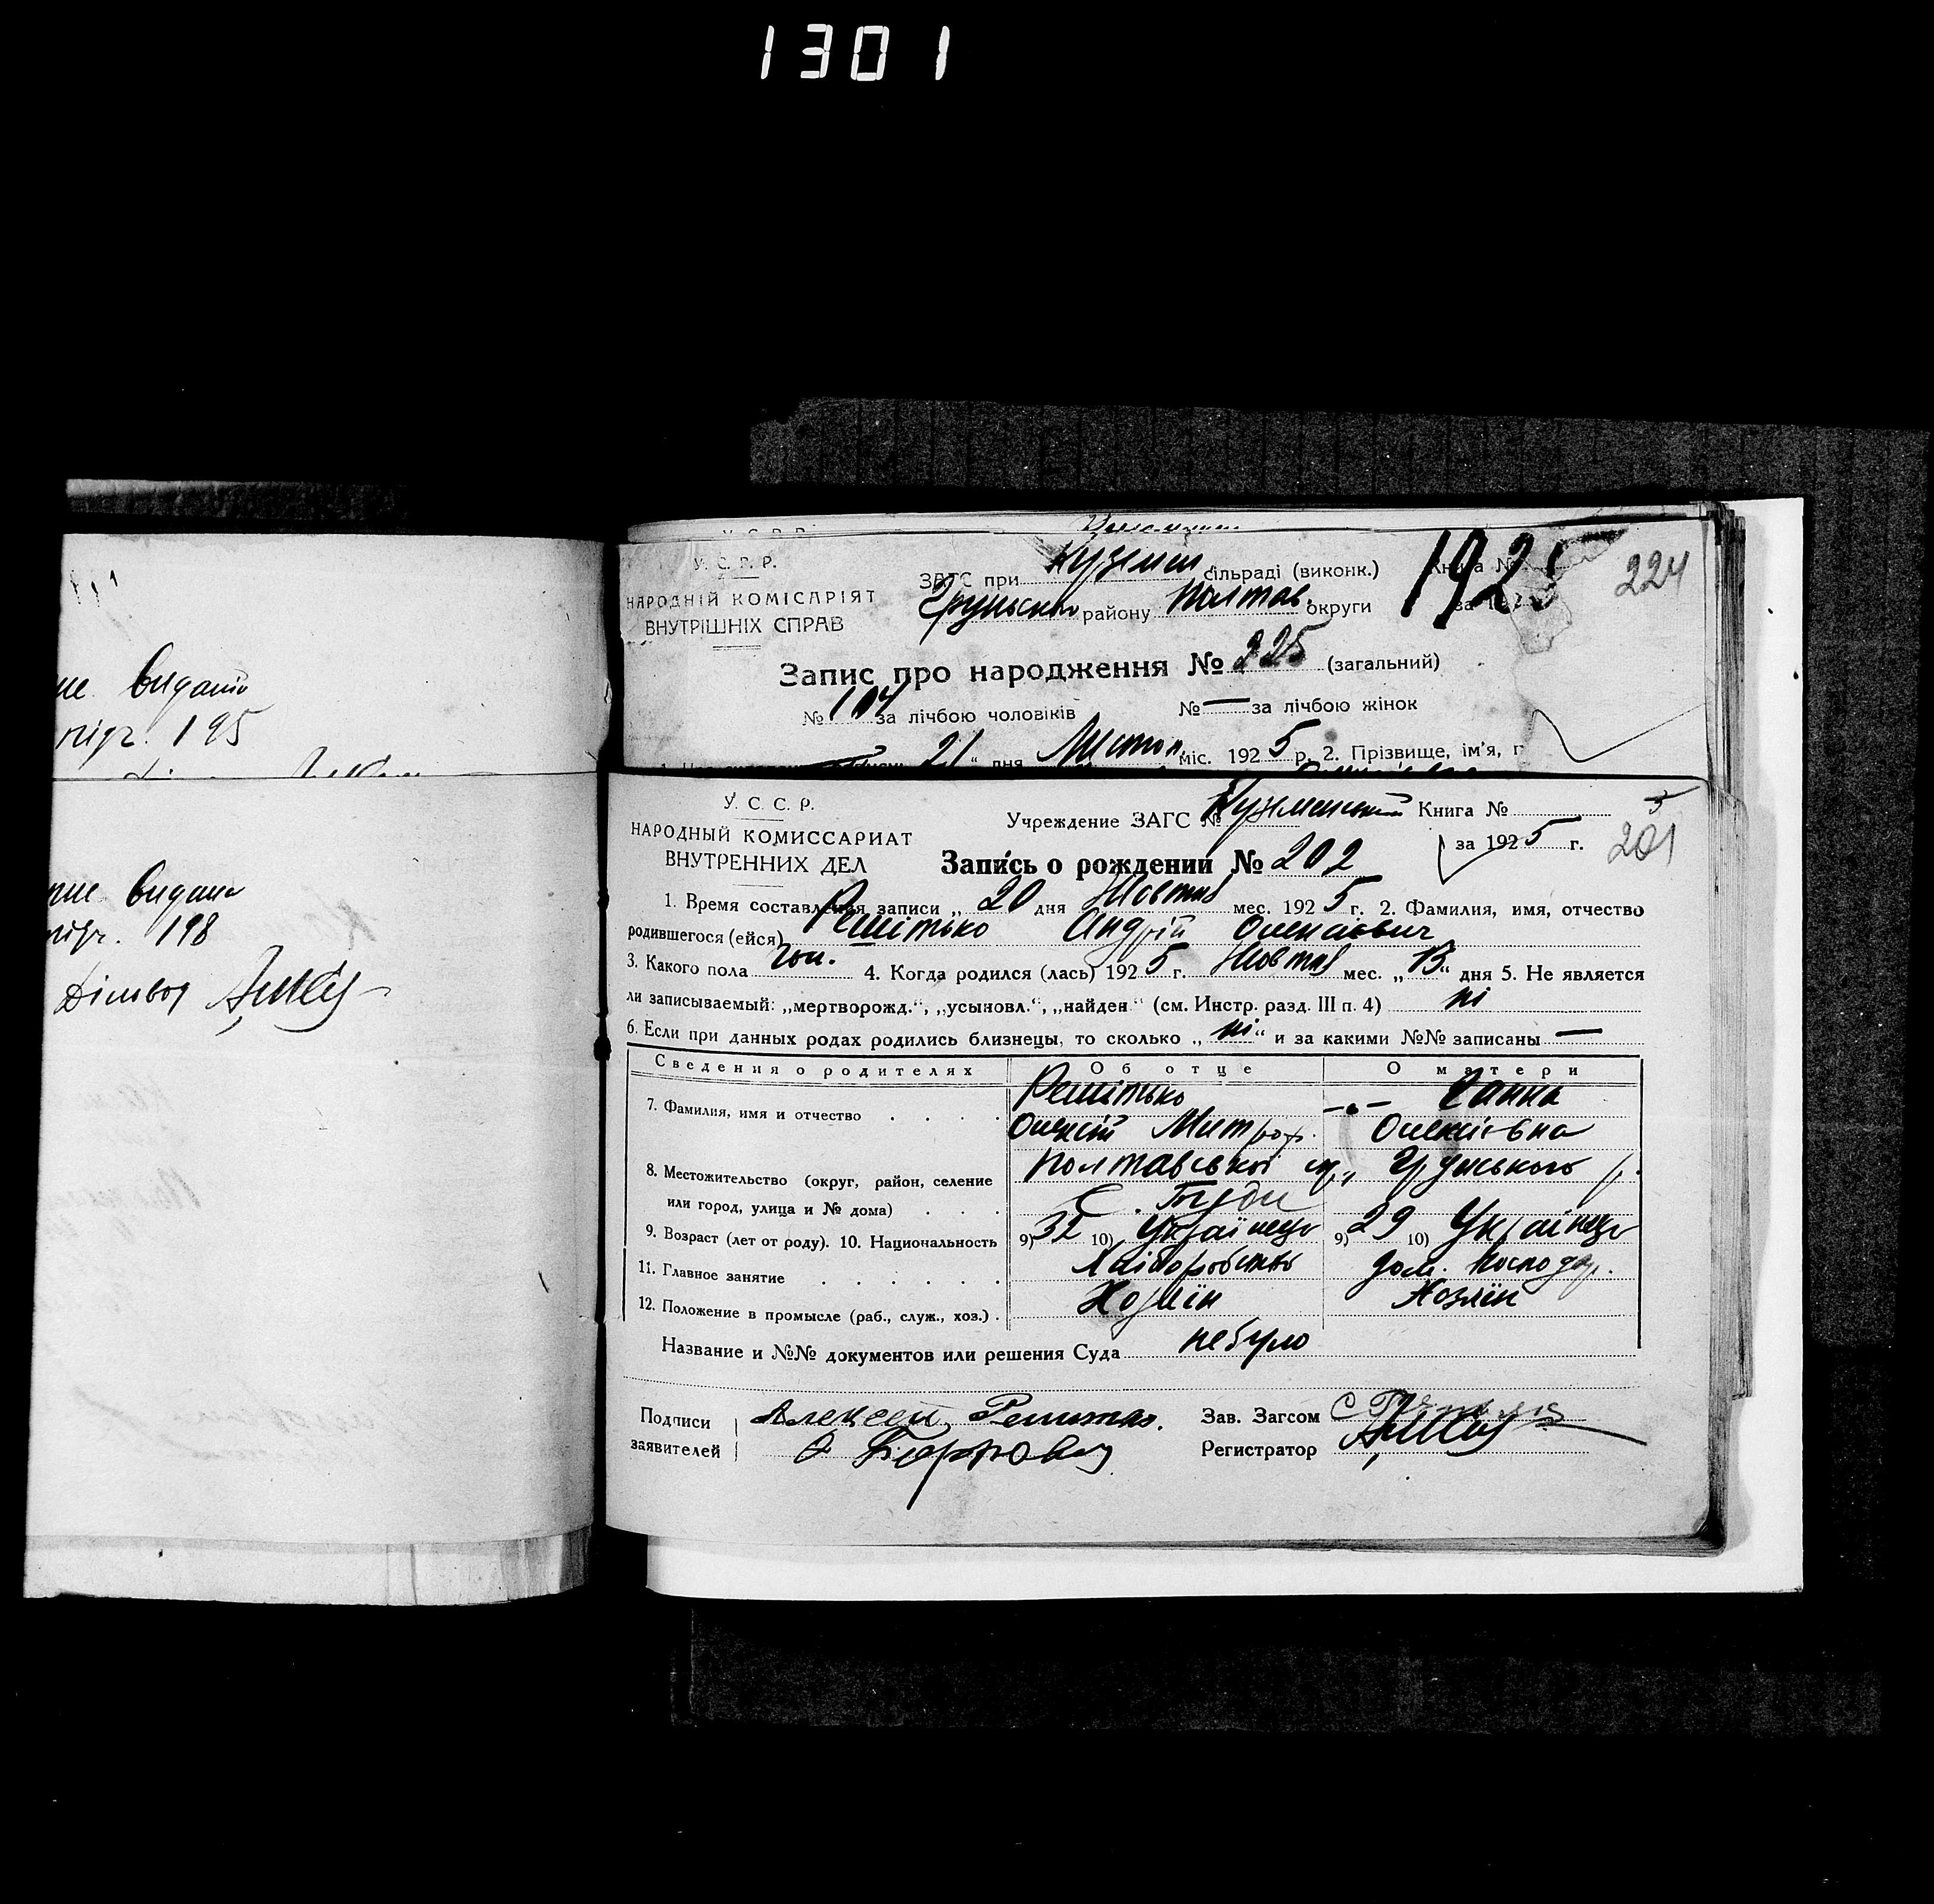 1301
У. С. Р. Р.
НАРОДНІЙ КОМІСАРІЯТ
ВНУТРІШНІХ СПРАВ
ЗАГС при Куземен. сільраді (виконк.) Книга №
Грунськ району Полтав. округи за 192
1925
224
Запис про народження № 225 (загальний)
№ 104 за лічбою чоловіків № — за лічбою жінок
21 " дня Листоп. міс. 1925 р. 2. Прізвище, ім'я, п
видано
195
видана
198
У. С. С. Р.
НАРОДНЫЙ КОМИССАРИАТ
ВНУТРЕННИХ ДЕЛ
Учреждение ЗАГС № Кузменський Книга №
за 1925 г.
201
Запись о рождении № 202
1. Время составления записи „ 20 дня Жовтня мес. 1925 г. 2. Фамилия, имя, отчество
родившегося (ейся) Решітько Андрій Олексієвич
3. Какого пола чол. 4. Когда родился (лась) 1925 г. Жовтня мес. „13" дня 5. Не является
ли записываемый: „мертворожд.", „усыновл.", „найден" (см. Инстр. разд. III п. 4) ні
6. Если при данных родах родились близнецы, то сколько „ ні " и за какими №№ записаны —
Сведения о родителях Об отце О матери
7. Фамилия, имя и отчество Решітько —„— Ганна
Олексій Митроф. Олексієвна
8. Местожительство (округ, район, селение Полтавської окр., Грунського р.
или город, улица и № дома) С.
9. Возраст (лет от роду). 10. Национальность 9) 32 10) Українець 9) 29 10) Українець
11. Главное занятие Хліборобство дом. господар.
12. Положение в промысле (раб., служ., хоз.) Хозяїн Хозяїн
Название и №№ документов или решения Суда не було
Подписи Алексей Решитко. Зав. Загсом
заявителей Регистратор